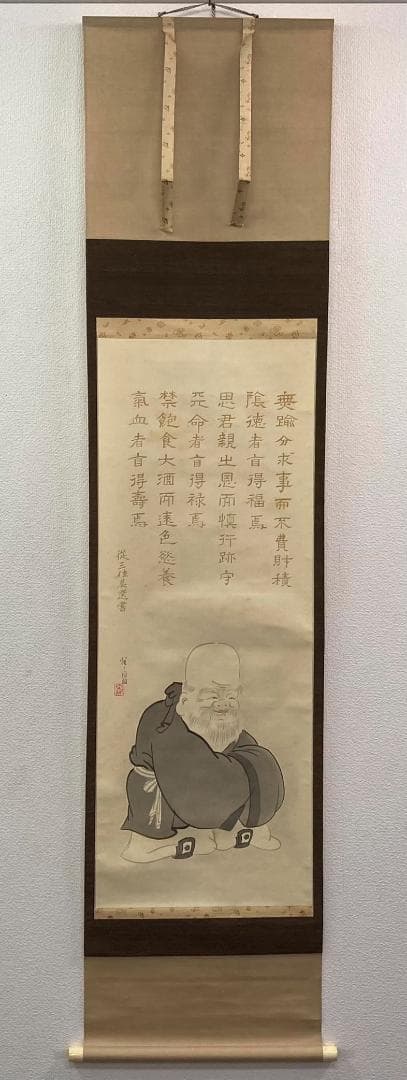 無踰分求事而不費財積
陰德者自得福焉
思君親之恩而慎行跡守
天命者自得禄焉
禁飽食大酒而遠色慾養
氣血者自得壽焉
從三位具選書